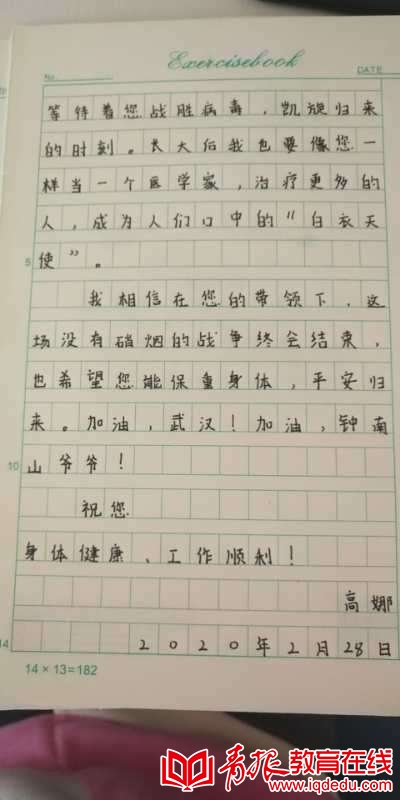 Exercisebook
No.
DATE
等待着您战胜病毒，凯旋归来
的时刻。长大后我也要像您一
样当一个医学家，治疗更多的
人，成为人们口中的“白衣天
5
使”。
我相信在您的带领下，这
场没有硝烟的战争终会结束，
也希望您能保重身体，平安归
来。加油，武汉！加油，钟南
10
山爷爷！
祝您
身体健康、工作顺利！
高娜
14
2020年2月28日
14×13=182
青报教育在线
www.iqdedu.com